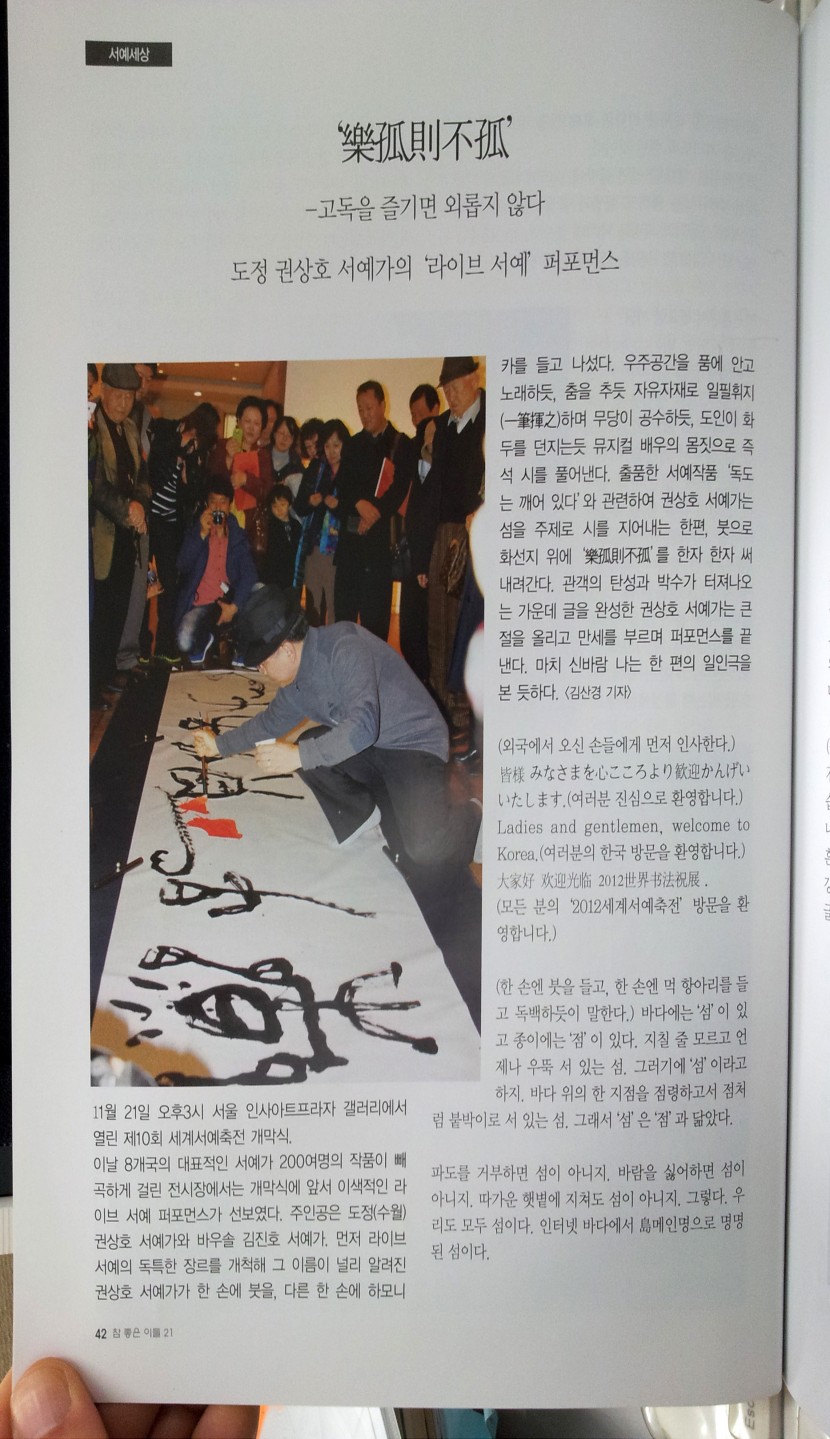 서예세상
‘樂孤則不孤’
-고독을 즐기면 외롭지 않다
도정 권상호 서예가의 ‘라이브 서예’ 퍼포먼스
11월 21일 오후3시 서울 인사아트프라자 갤러리에서
열린 제10회 세계서예축전 개막식.
이날 8개국의 대표적인 서예가 200여명의 작품이 빼
곡하게 걸린 전시장에서는 개막식에 앞서 이색적인 라
이브 서예 퍼포먼스가 선보였다. 주인공은 도정(수월)
권상호 서예가와 바우솔 김진호 서예가. 먼저 라이브
서예의 독특한 장르를 개척해 그 이름이 널리 알려진
권상호 서예가가 한 손에 붓을, 다른 한 손에 하모니
카를 들고 나섰다. 우주공간을 품에 안고
노래하듯, 춤을 추듯 자유자재로 일필휘지
(一筆揮之)하며 무당이 공수하듯, 도인이 화
두를 던지는듯 뮤지컬 배우의 몸짓으로 즉
석 시를 풀어낸다. 출품한 서예작품 ‘독도
는 깨어 있다’와 관련하여 권상호 서예가는
섬을 주제로 시를 지어내는 한편, 붓으로
화선지 위에 ‘樂孤則不孤’를 한자 한자 써
내려간다. 관객의 탄성과 박수가 터져나오
는 가운데 글을 완성한 권상호 서예가는 큰
절을 올리고 만세를 부르며 퍼포먼스를 끝
낸다. 마치 신바람 나는 한 편의 일인극을
본 듯하다. <김산경 기자>
(외국에서 오신 손들에게 먼저 인사한다.)
皆様 みなさまを心こころより歓迎かんげい
いたします.(여러분 진심으로 환영합니다.)
Ladies and gentlemen, welcome to
Korea.(여러분의 한국 방문을 환영합니다.)
大家好 欢迎光临 2012世界书法祝展 .
(모든 분의 ‘2012세계서예축전’ 방문을 환
영합니다.)
(한 손엔 붓을 들고, 한 손엔 먹 항아리를 들
고 독백하듯이 말한다.) 바다에는 ‘섬’이 있
고 종이에는 ‘점’이 있다. 지칠 줄 모르고 언
제나 우뚝 서 있는 섬. 그러기에 ‘섬’이라고
하지. 바다 위의 한 지점을 점령하고서 점처
럼 붙박이로 서 있는 섬. 그래서 ‘섬’은 ‘점’과 닮았다.
파도를 거부하면 섬이 아니지. 바람을 싫어하면 섬이
아니지. 따가운 햇볕에 지쳐도 섬이 아니지. 그렇다. 우
리도 모두 섬이다. 인터넷 바다에서 島메인명으로 명명
된 섬이다.
42 참 좋은 이들 21